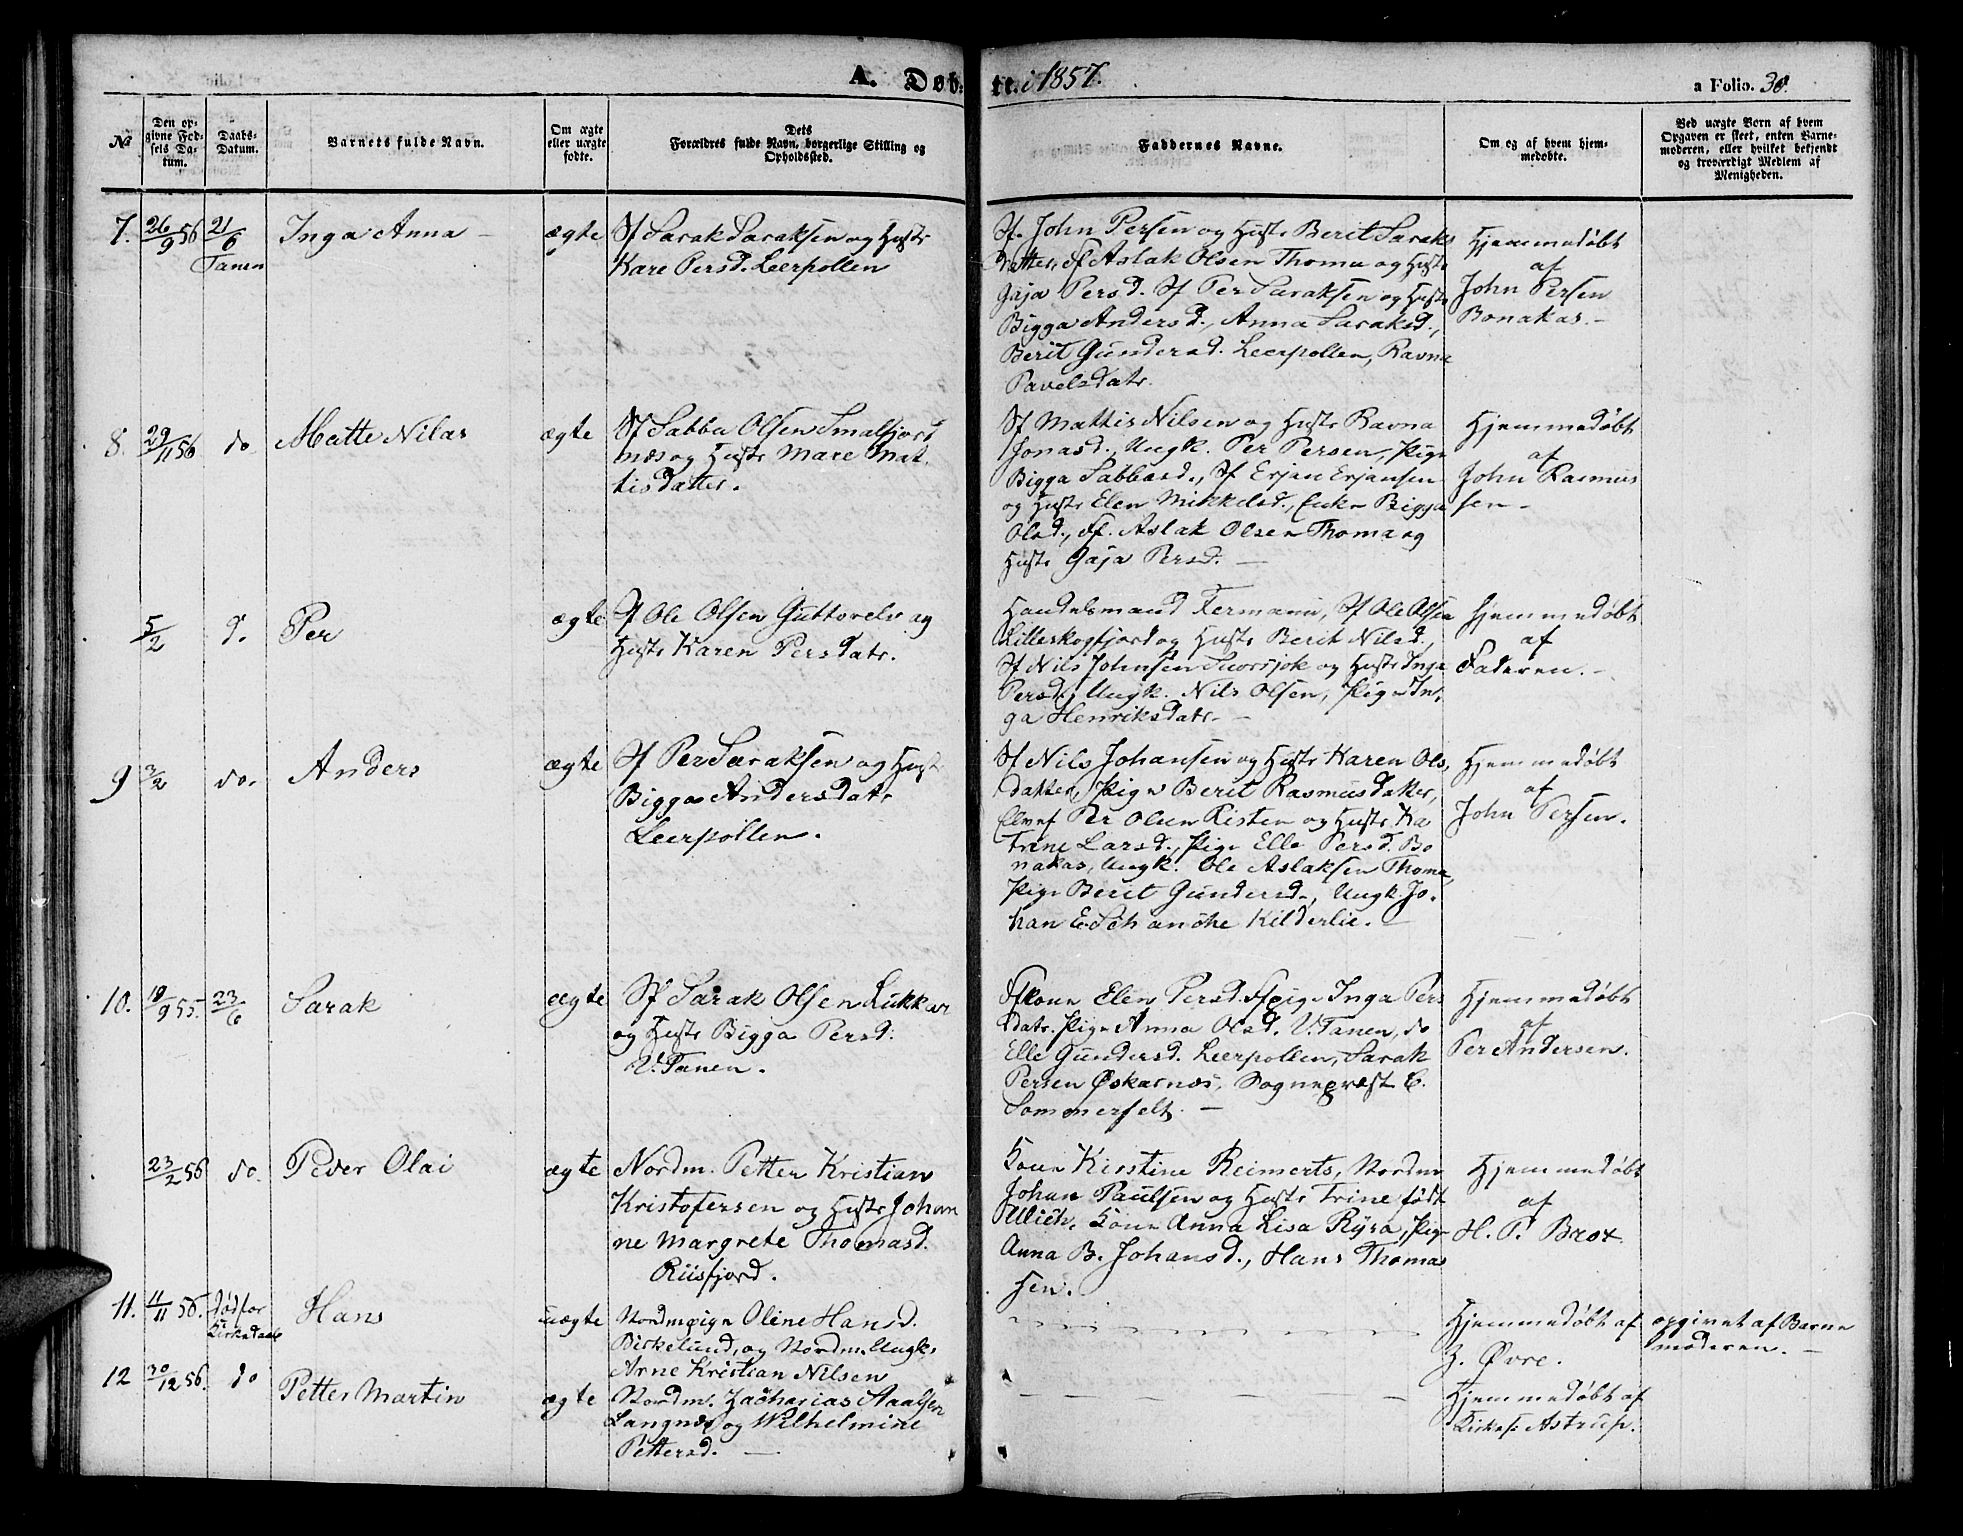 A. Døb- te i 1857. a Folio. 30.
№ Den opgivne Fødsels Datum. Daabs-Datum. Barnets fulde Navn. Om ægte eller uægte fødte. Dets Forældres fulde Navn, borgerlige Stilling og Opholdssted. Faddernes Navne. Om og af hvem hjemmedøbte. Ved uægte Børn af hvem Opgaven er skeet, enten Barnemoderen, eller hvilket bekjendt og troværdigt Medlem af Menigheden.
7. 26/9 56 21/6 Tanen Inga Anna ægte
Sf Sarak Saraksen og Hustr
Kare Persd. Leerpollen
Sf. John Persen og Hustr Berit Saraks
datter, Sf Aslak Olsen Thoma og Hustr
Gaja Persd. Sf Per Saraksen og Hustr
Bigga Andersd., Anna Saraksd.,
Berit Gundersd. Leerpollen, Ravna
Pavelsdatr.
Hjemmedøbt
af
John Persen
Bonakas.
8. 29/11 56 do. Matte Nilas ægte
Sf Sabba Olsen Smalfjord
næs og Hustr Mare Mat
tisdatter.
Sf Mattis Nilsen og Hustr Ravna
Jonasd., Ungk. Per Persen, Pige
Bigga Sabbasd., Sf Erjan Erjansen
og Hustr Elen Mikkelsd., Enke Bigga
Olsd., Sf. Aslak Olsen Thoma og
Hustr Gaja Persd.
Hjemmedøbt
af
John Rasmus
sen
5/2 d. Per ægte
Sf Ole Olsen Guttorelv og
Hustr Karen Persdatr.
Handelsmand Fermann, Sf Ole Olsen
Lilleskogfjord og Hustr Berit Nilsd.,
Sf Nils Johnsen og Hustr Inga
Persd., Ungk. Nils Olsen, Pige In
ga Henriksdatr.
Hjemmedøbt
af
Faderen.
9 3/2 do. Anders ægte
Sf Per Saraksen og Hust
Bigga Andersdatr
Leerpollen.
Sf Nils Johansen og Hustr Karen Ols
datter, Pige Berit Rasmusdatter,
Per Olsen Risten og Hustr Ka
trine Larsd., Pige Elle Persd. Bo
nakas, Ungk. Ole Aslaksen Thoma,
Pige Berit Gundersd., Ungk. Jo
han E. Schanche Kilderlie.
Hjemmedøbt
af
John Persen.
10. 10/9 55. 23/6 Sarak ægte
Sf Sarak Olsen Lukkar
og Hustr Bigga Persd.
V. Tanen.
Sfkone Elen Persd. Sfpige Inga Pers
datr. Pige Anna Olsd. V. Tanen, do
Elle Gundersd. Leerpollen, Sarak
Persen Øskarnæs, Sognepræst C.
Sommerfelt.
Hjemmedøbt
af
Per Andersen.
23/2 56 do. Peder Olai ægte
Nordm. Petter Kristian
Kristofersen og Hustr Johan
ne Margrete Thomasd.
Riisfjord.
Kone Kirstine Reimerts, Nordm
Johan Paulsen og Hustr Trine født
Ulich. Kone Anna Lisa Rysa, Pige
Anna B. Johansd., Hans Thomas
sen.
Hjemmedøbt
af
H. P. Brox
11. 11/11 56. død før Kirkedaab Hans uægte
Nordmpige Oline Hansd.
Birkelund, og Nordm. Ungk.
Arne Kristian Nilsen
Hjemmedøbt af
Z. Øvre.
opgivet af Barne
moderen.
12 30/12 56. do Petter Martin ægte
Nordm. Zacharias Aaalsen
Langnæs og Wilhelmine
Pettersd.
Hjemmedøbt af
Kirkes: Astrup.